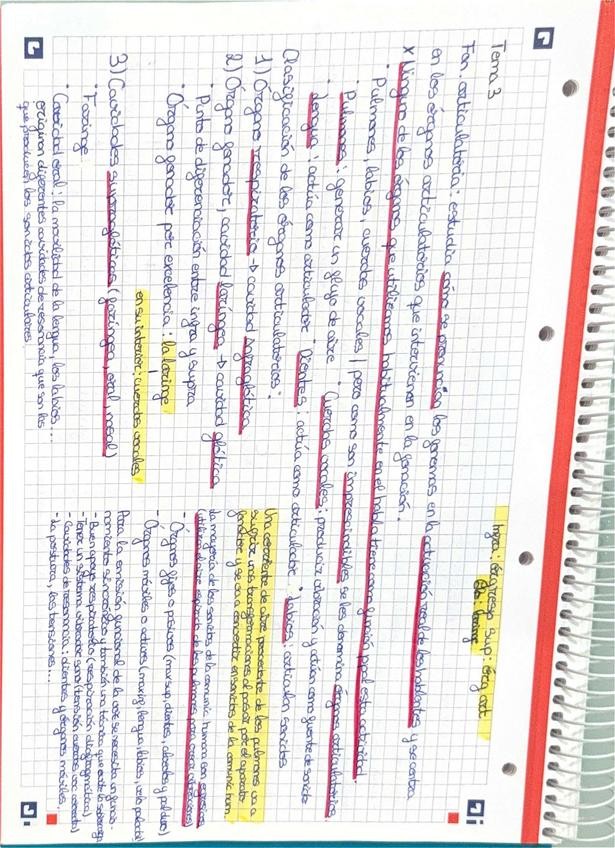 Tema 3
Infra: Órg resp Sup: órg art
Glo: laringe
Fon. articulatoria: estudia cómo se pronuncian los fonemas en la actuación real de los hablantes y se centra
en los órganos articulatorios que intervienen en la formación.
x Ninguno de los órganos que utilizamos habitualmente en el habla tiene como función ppal esta actividad.
· Pulmones, labios, cuerdas vocales / pero como son imprescindibles se les denomina órganos articulatorios
· Pulmones: generar un flujo de aire · Cuerdas vocales: producir vibración y actúan como fuente de sonido
· Lengua: actúa como articulador · Dientes: actúa como articulador · Labios: articulan sonidos
Clasificación de los órganos articulatorios:
1) Órgano respiratorio → cavidad infraglótica
2) Órgano fonador, cavidad laríngea → cavidad glótica
· Punto de diferenciación entre infra y supra
· Órgano fonador por excelencia: la laringe
en su interior, cuerdas vocales
3) Cavidades supraglóticas (faríngea, oral, nasal)
· Faringe
· Cavidad oral: la movilidad de la lengua, los labios...
originan diferentes cavidades de resonancia que son las
que producen los sonidos articulares.
Una corriente de aire procedente de los pulmones va a
sufrir unas transformaciones al pasar por el aparato
fonador y se va a convertir en sonidos de la comunic hum.
La mayoría de los sonidos de la comunic humana son
(utiliza el aire espirado de los pulmones para crear vibraciones)
- Órganos fijos o pasivos (max sup, dientes, alveolos y paladar)
- Órganos móviles o activos (max inf, lengua, labios, velo paladar)
Para la emisión funcional de la voz se necesita un funcio-
namiento sincronizado y también una técnica que evite la sobrecarga
- Buen apoyo respiratorio (respiración diafragmática)
- Tener un sistema vibrador sano (tensión cuerdas voc correcta)
- Cavidades de resonancia: dientes y órganos móviles.
- La postura, las tensiones...